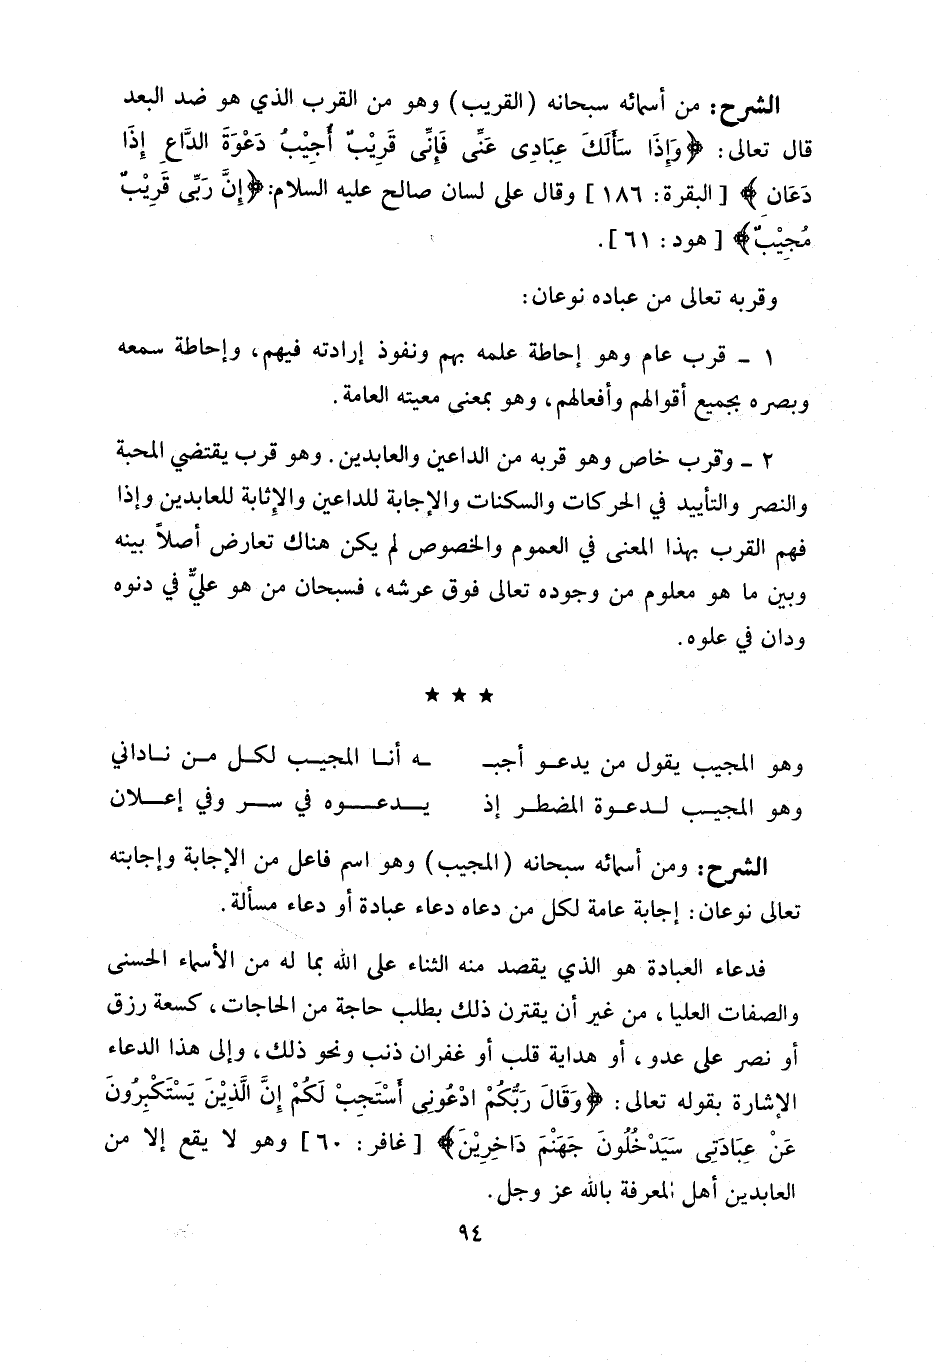 الشرح: من أسمائه سبحانه (القريب) وهو من القرب الذي هو ضد البعد
قال تعالى: ﴿وَإِذَا سَأَلَكَ عِبَادِى عَنِّى فَإِنِّى قَرِيْبٌ أُجِيْبُ دَعْوَةَ الدَّاعِ إِذَا
دَعَانِ﴾ [البقرة: ١٨٦] وقال على لسان صالح عليه السلام: ﴿إِنَّ رَبِّى قَرِيْبٌ
مُجِيْبٌ﴾ [هود: ٦١].
وقربه تعالى من عباده نوعان:
١ ـ قرب عام وهو إحاطة علمه بهم ونفوذ إرادته فيهم، وإحاطة سمعه
وبصره بجميع أقوالهم وأفعالهم، وهو بمعنى معيته العامة.
٢ ـ وقرب خاص وهو قربه من الداعين والعابدين. وهو قرب يقتضي المحبة
والنصر والتأييد في الحركات والسكنات والإجابة للداعين والإثابة للعابدين وإذا
فهم القرب بهذا المعنى في العموم والخصوص لم يكن هناك تعارض أصلاً بينه
وبين ما هو معلوم من وجوده تعالى فوق عرشه، فسبحان من هو عليٌّ في دنوه
ودان في علوه.
★ ★ ★
وهو المجيب يقول من يدعـو أجبـ ـه أنـا المجيـب لكـل مـن نـاداني
وهو المجيـب لـدعـوة المضطـر إذ يـدعـــوه في ســر وفي إعــلان
الشرح: ومن أسمائه سبحانه (المجيب) وهو اسم فاعل من الإجابة وإجابته
تعالى نوعان: إجابة عامة لكل من دعاه دعاء عبادة أو دعاء مسألة.
فدعاء العبادة هو الذي يقصد منه الثناء على الله بما له من الأسماء الحسنى
والصفات العليا، من غير أن يقترن ذلك بطلب حاجة من الحاجات، كسعة رزق
أو نصر على عدو، أو هداية قلب أو غفران ذنب ونحو ذلك، وإلى هذا الدعاء
الإشارة بقوله تعالى: ﴿وَقَالَ رَبُّكُمْ ادْعُونِى أَسْتَجِبْ لَكُمْ إِنَّ الَّذِيْنَ يَسْتَكْبِرُونَ
عَنْ عِبَادَتِى سَيَدْخُلُونَ جَهَنَّمَ دَاخِرِيْنَ﴾ [غافر: ٦٠] وهو لا يقع إلا من
العابدين أهل المعرفة بالله عز وجل.
٩٤